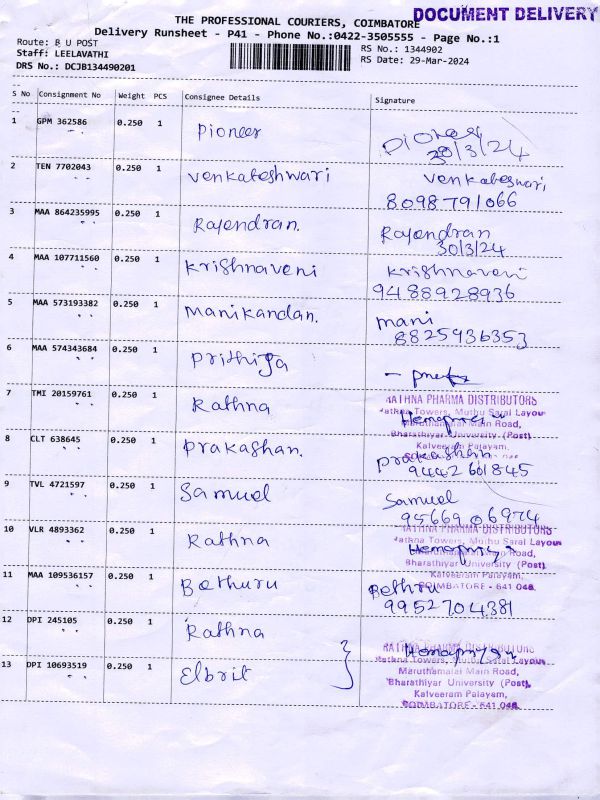 DOCUMENT DELIVERY
THE PROFESSIONAL COURIERS, COIMBATORE
Delivery Runsheet - P41 - Phone No.:0422-3505555 - Page No.:1
Route: B U POST
RS No.: 1344902
Staff: LEELAVATHI
RS Date: 29-Mar-2024
DRS No.: DCJB134490201
S No Consignment No Weight PCS Consignee Details Signature
1 GPM 362586 0.250 1 Pioneer Pioneer
30/3/24
2 TEN 7702043 0.250 1 Venkateshwari Venkateswari
8098791066
3 MAA 864235995 0.250 1 Rajendran. Rajendran
30/3/24
4 MAA 107711560 0.250 1 Krishnaveni Krishnaveni
9488928936
5 MAA 573193382 0.250 1 Manikandan. mani
8825936353
6 MAA 574343684 0.250 1
7 TMI 20159761 0.250 1 Rathna
RATHNA PHARMA DISTRIBUTORS
Rathna Towers, Muthu Saral Layou
Maruthamalai Main Road,
Bharathiyar University (Post)
Kalveeram Palayam,
8 CLT 638645 0.250 1 Prakashan. Prakashan
9442601845
9 TVL 4721597 0.250 1 Samuel Samuel
95669 06974
10 VLR 4893362 0.250 1 Rathna
RATHNA PHARMA DISTRIBUTORS
Rathna Towers, Muthu Saral Layou
Road,
Bharathiyar University (Post)
Kalveeram Palayam,
COIMBATORE - 641 046.
11 MAA 109536157 0.250 1 Bethuru Bethru
9952704381
12 DPI 245105 0.250 1 Rathna
RATHNA PHARMA DISTRIBUTORS
Rathna Towers, Muthu Saral Layou
13 DPI 10693519 0.250 1 Elbrit
Maruthamalai Main Road,
Bharathiyar University (Post),
Kalveeram Palayam,
COIMBATORE - 641 046.